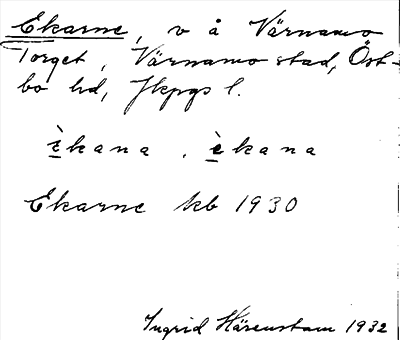 Ekarne, v å Värnamo
Torget, Värnamo stad, Öst-
bo hd, Jkpgs l.
èkana, èkana
Ekarne kb 1930
Ingrid Härenstam 1932